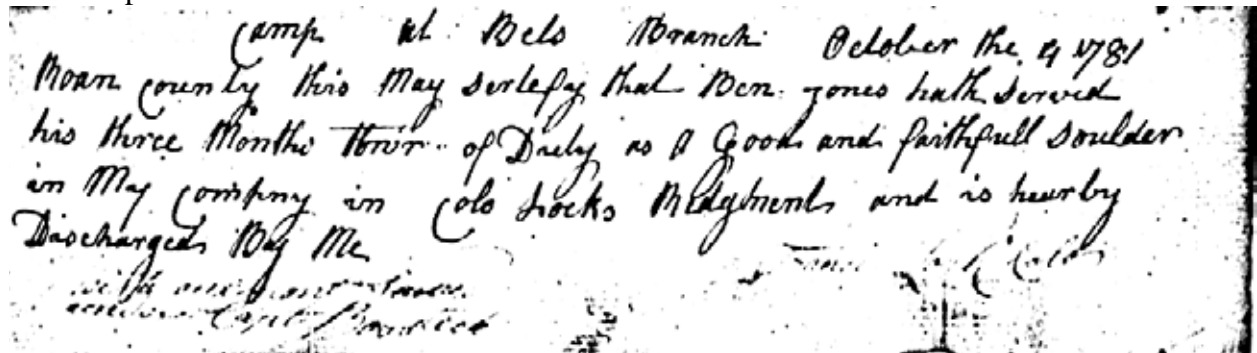 Camp at Bels Branch October the 4 1781
Roan County this May sertefy that Ben Jones hath served
his three Months Tour of Duty as A Good and faithfull Soulder
in My Company in Colo Locks Redgment and is hearby
Discharged By Me
with one
under Capt